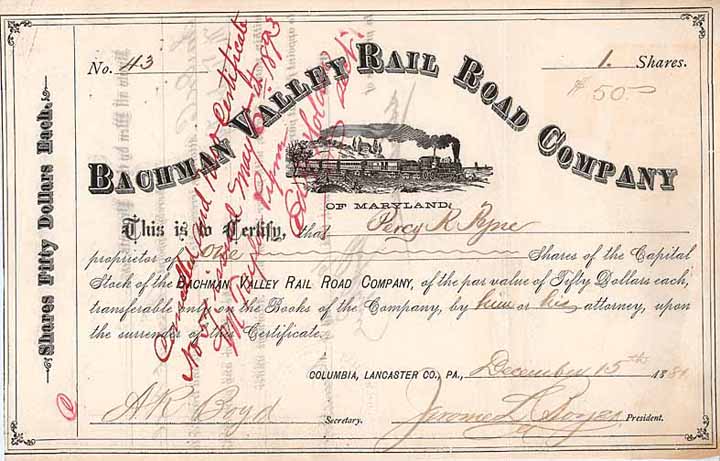 No. 43
1. Shares.
$50.00
BACHMAN VALLEY RAIL ROAD COMPANY
OF MARYLAND
This is to Certify, that Percy R Pyne
proprietor of One Shares of the Capital
Stock of the BACHMAN VALLEY RAIL ROAD COMPANY, of the par value of Fifty Dollars each,
transferable only on the Books of the Company, by him or his attorney, upon
the surrender of this Certificate.
COLUMBIA, LANCASTER CO., PA., December 15th 188
A R Boyd Secretary. Jerome L Boyer President.
Shares Fifty Dollars Each.
Cancelled and New Certificate
No issued May 1893